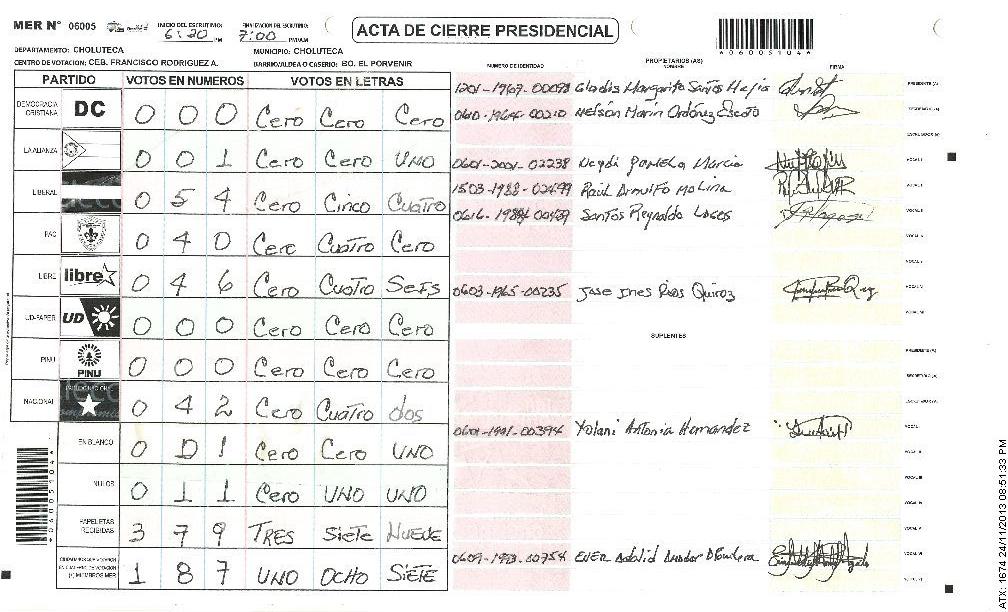 MER Nº 06005 INICIO DEL ESCRUTINIO: 6:20 PM FINALIZACION DEL ESCRUTINIO: 7:00 PM/AM ACTA DE CIERRE PRESIDENCIAL
*06005104*
DEPARTAMENTO: CHOLUTECA MUNICIPIO: CHOLUTECA
CENTRO DE VOTACION: CEB. FRANCISCO RODRIGUEZ A. BARRIO/ALDEA O CASERIO: BO. EL PORVENIR
NUMERO DE IDENTIDAD PROPIETARIOS (AS) NOMBRE FIRMA
PARTIDO VOTOS EN NUMEROS VOTOS EN LETRAS
1201-1967-00098 Gladis Margarita Santos Mejia PRESIDENTE (A)
DEMOCRACIA CRISTIANA DC 0 0 0 Cero Cero Cero
0610-1964-00210 Nelson Marin Ordoñez SECRETARIO (A)
ESCRUTADOR (A)
LA ALIANZA 0 0 1 Cero Cero UNO
0601-2001-02238 VOCAL I
1503-1988-02499 Raul Arnulfo Molina
LIBERAL 0 5 4 Cero Cinco Cuatro
Santos Reynaldo
PAC 0 4 0 Cero Cuatro Cero
LIBRE libre 0 4 6 Cero Cuatro Seis
0603-1965-00235 Jose Ines Quiroz
UD-FAPER UD 0 0 0 Cero Cero Cero
SUPLENTES
PINU PINU 0 0 0 Cero Cero Cero
PRESIDENTE (A)
SECRETARIO (A)
NACIONAL 0 4 2 Cero Cuatro dos
ESCRUTADOR (A)
0601-1991-00394 Yolani Antonia Hernandez VOCAL I
EN BLANCO 0 0 1 Cero Cero UNO
NULOS 0 1 1 Cero UNO UNO
PAPELETAS RECIBIDAS 3 7 9 TRES Siete NUEVE
CIUDADANOS QUE VOTARON EN CUADERNO DE VOTACION (+) MIEMBROS MER 1 8 7 UNO OCHO SIETE
*06005104*
ATX: 1674 24/11/2013 08:51:33 PM